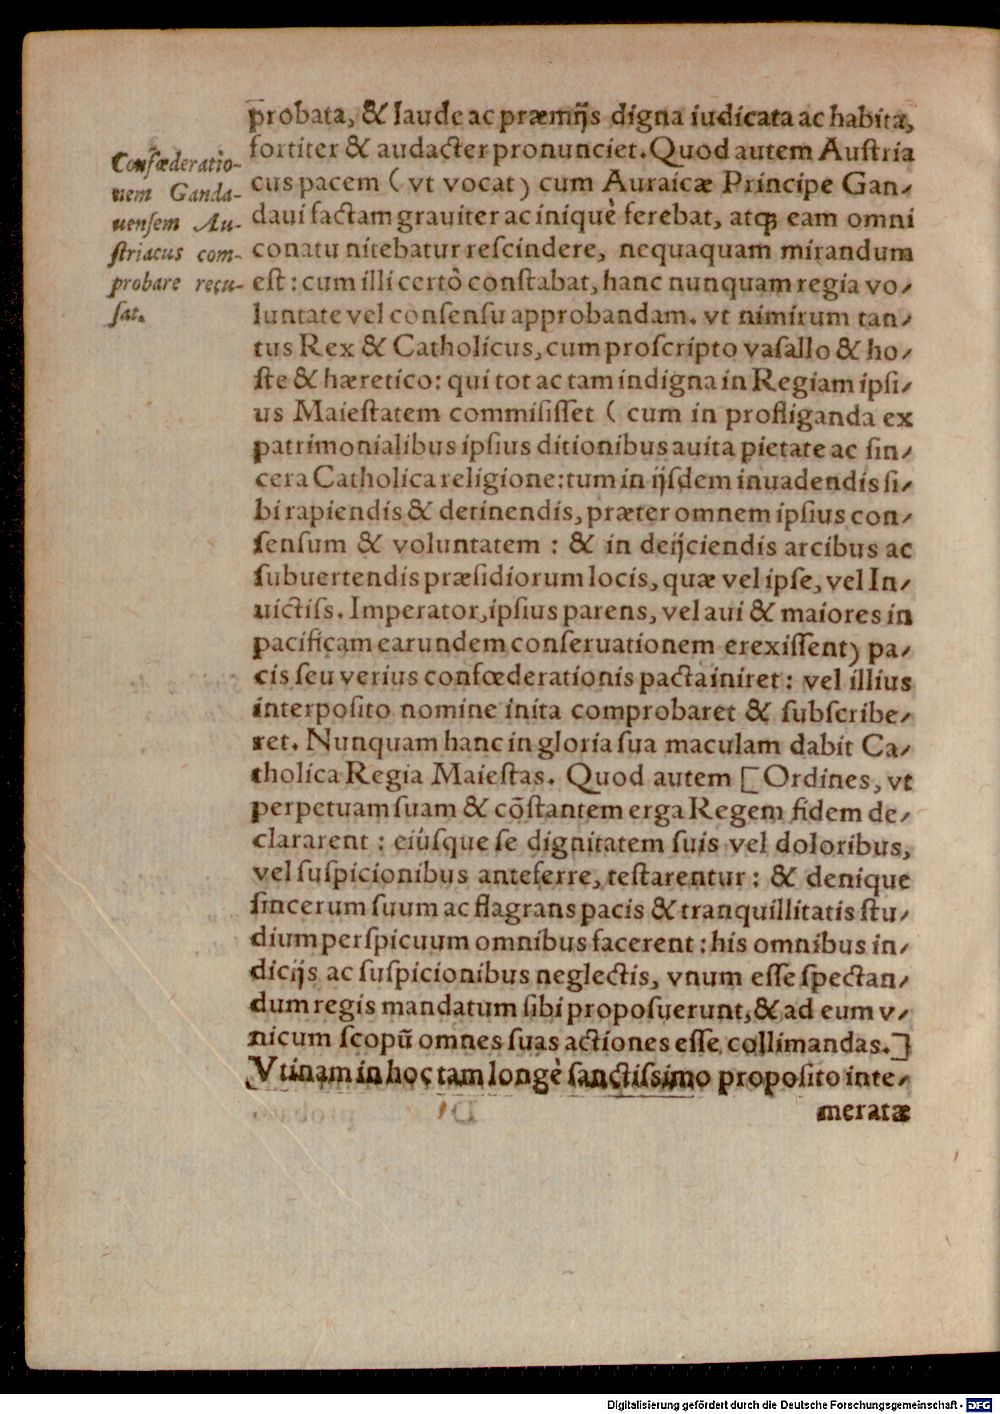 probata, & laude ac præmijs digna iudicata ac habita,
fortiter & audacter pronunciet. Quod autem Auſtria
cus pacem ( vt vocat ) cum Auraicæ Principe Gan-
daui factam grauiter ac iniquè ferebat, atq́; eam omni
conatu nitebatur reſcindere, nequaquam mirandum
eſt : cum illi certò conſtabat, hanc nunquam regia vo-
luntate vel conſenſu approbandam. vt nimirum tan-
tus Rex & Catholicus, cum proſcripto vaſallo & ho-
ſte & hæretico: qui tot ac tam indigna in Regiam ipſi-
us Maieſtatem commiſiſſet ( cum in profliganda ex
patrimonialibus ipſius ditionibus auita pietate ac ſin-
cera Catholica religione: tum in ijſdem inuadendis ſi-
bi rapiendis & detinendis, præter omnem ipſius con-
ſenſum & voluntatem : & in deijciendis arcibus ac
ſubuertendis præſidiorum locis, quæ vel ipſe, vel In-
uictiſs. Imperator, ipſius parens, vel aui & maiores in
pacificam earundem conſeruationem erexiſſent) pa-
cis ſeu verius confœderationis pacta iniret : vel illius
interpoſito nomine inita comprobaret & ſubſcribe-
ret. Nunquam hanc in gloria ſua maculam dabit Ca-
tholica Regia Maieſtas. Quod autem [Ordines, vt
perpetuam ſuam & cõſtantem erga Regem fidem de-
clararent ; eiúſque ſe dignitatem ſuis vel doloribus,
vel ſuſpicionibus anteferre, teſtarentur : & denique
ſincerum ſuum ac flagrans pacis & tranquillitatis ſtu-
dium perſpicuum omnibus facerent ; his omnibus in-
dicijs ac ſuſpicionibus neglectis, vnum eſſe ſpectan-
dum regis mandatum ſibi propoſuerunt, & ad eum v-
nicum ſcopũ omnes ſuas actiones eſſe collimandas.]
Vtinam in hoc tam longè ſanctiſsimo propoſito inte-
meratæ
Confœderatio-
nem Ganda-
uenſem Au-
ſtriacus com-
probare recu-
ſat.
Digitalisierung gefördert durch die Deutsche Forschungsgemeinschaft - DFG